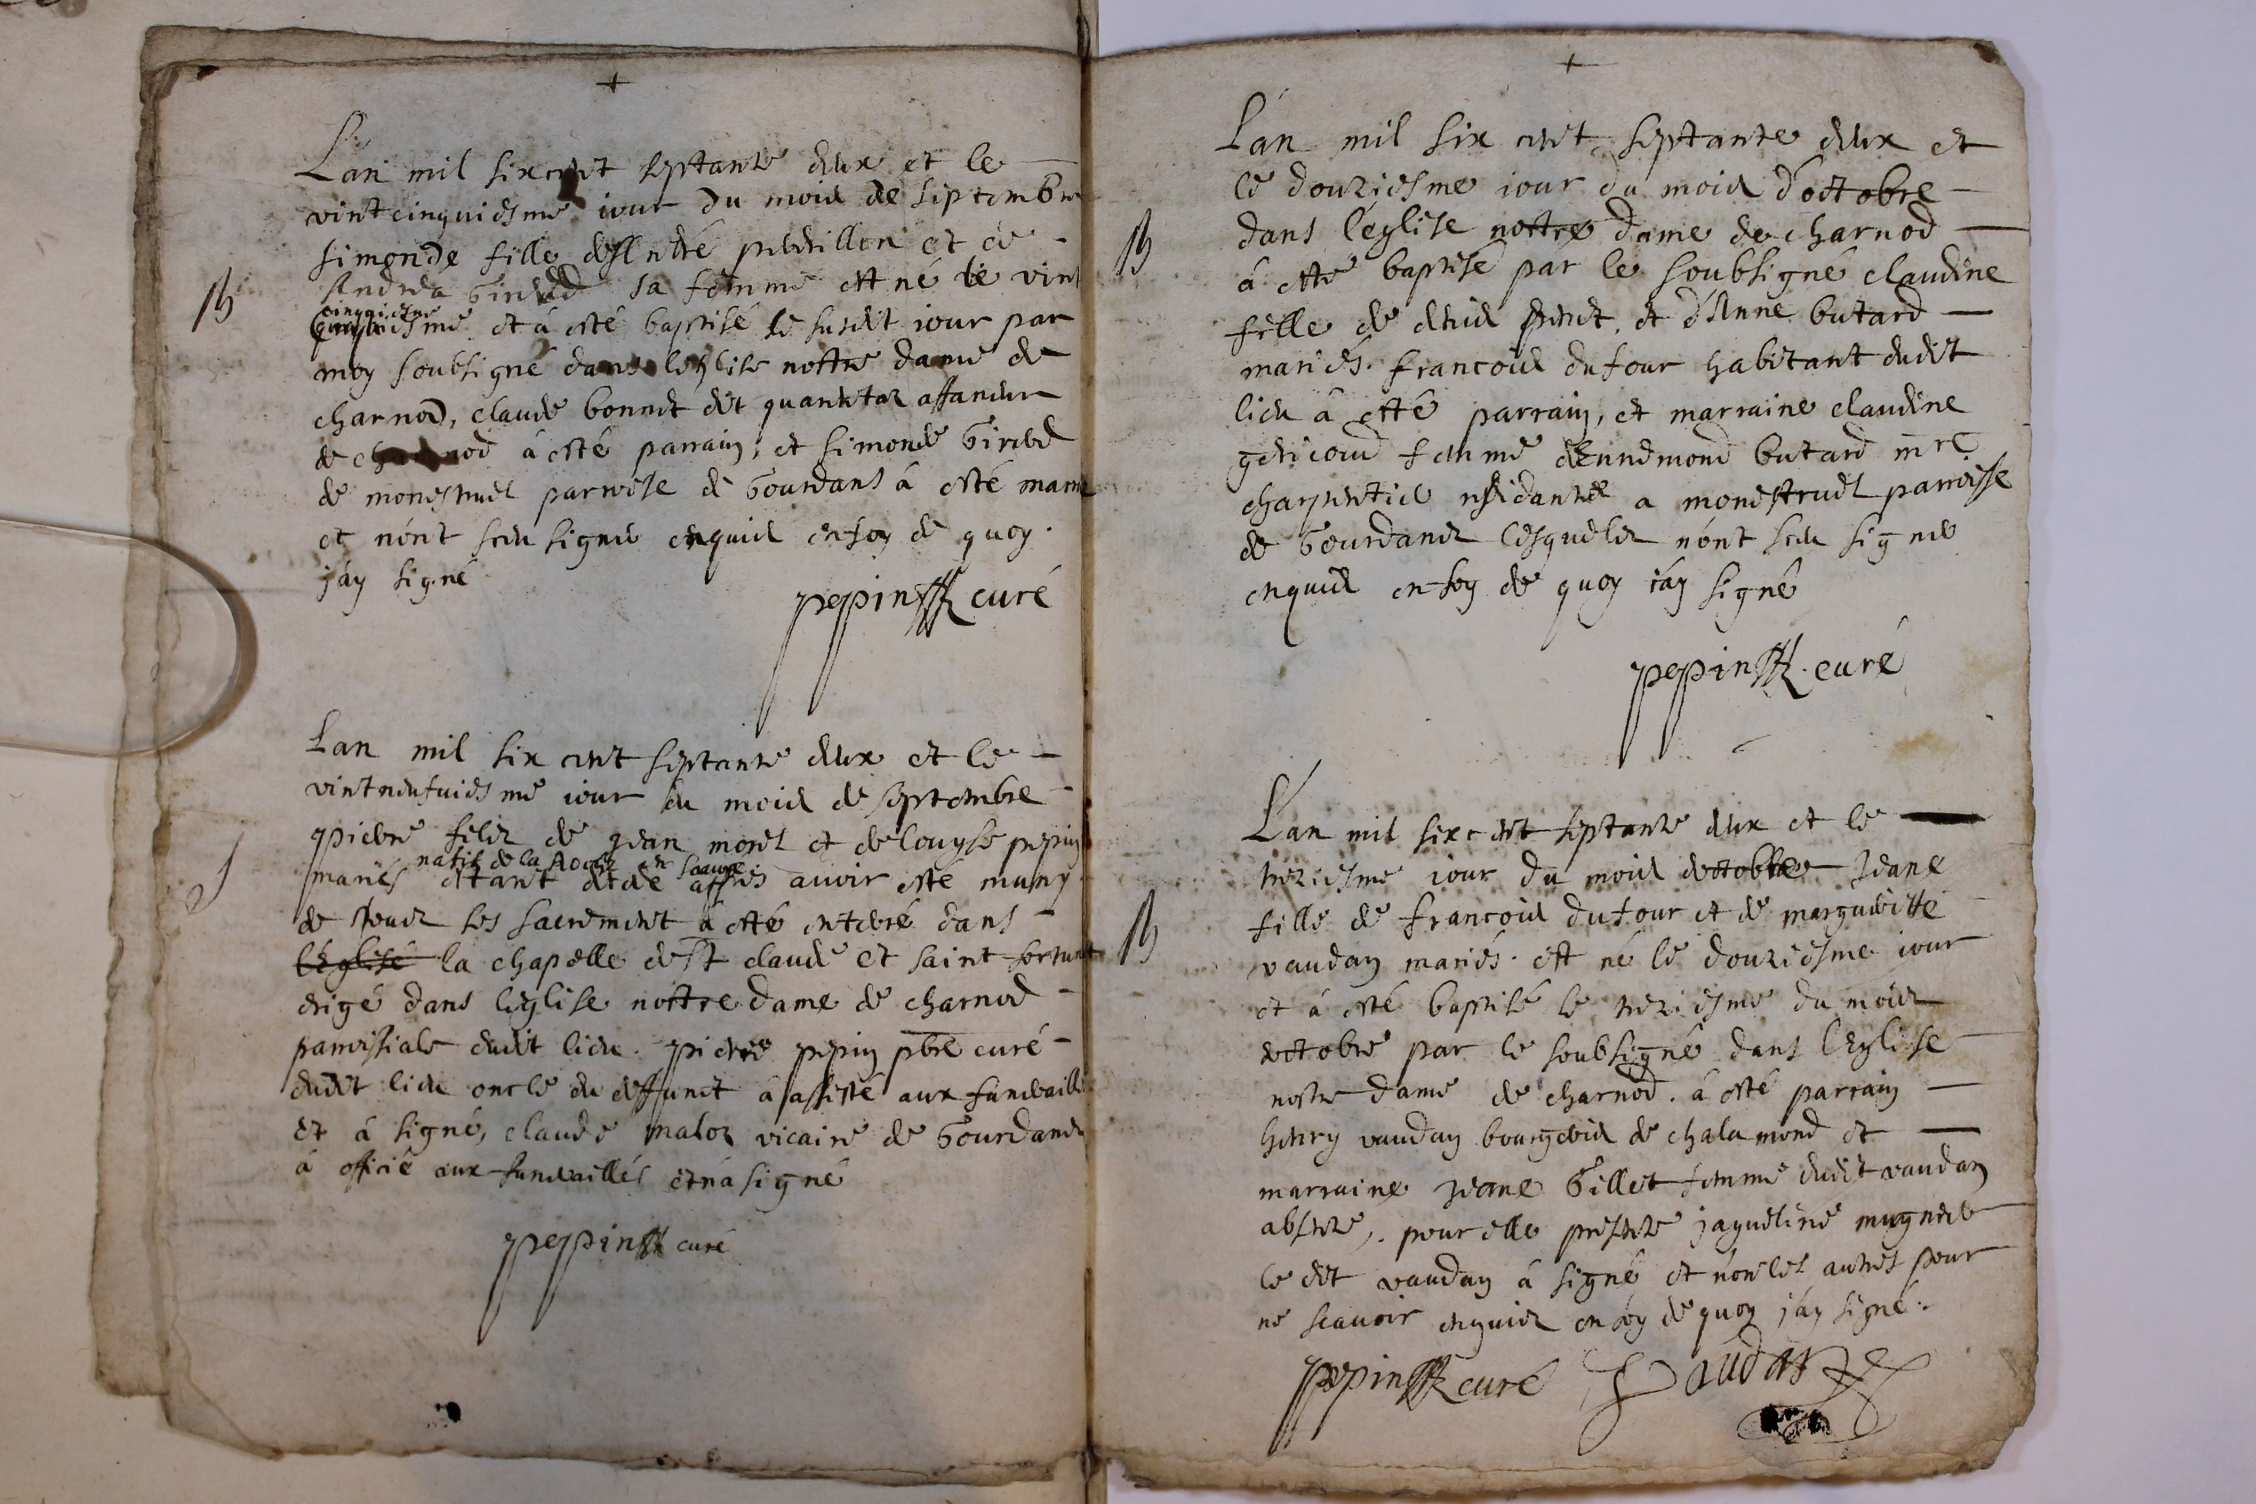 +
Lan mil six cent septante deux et le
vintcinquiesme iour du mois de septembre
simonde fille desl André et de
Andrea Girerd sa femme est né le vint
cinquiesme
et à esté baptisé le susdit iour par
B
moy soubsigné dans leglise nottre dame de
charnod, claude bonnet dit affaneur
de charnod à esté parrain, et simonde Girerd
de monestruel parroisse de Gourdans à esté marne
et nónt sceu signer enquis en foy de quoy
jáy signé
pepin curé
Lan mil six cent septante deux et le
vintneufuiesme iour du mois de septembre
pierre filz de Jean morel et de Louyse pepin
natif de la Roche en
mariés estant decedé apprés auoir esté muny
S
de tous les sacrement à esté enterré dans
lEglise la chapelle de St claude et saint fortunat
erigé dans léglise nottre dame de charnod
parroissiale dudit lieu. pierre pepin pbre curé
dudit lieu oncle du deffunct à assisté aux funerailles
et à signé, claude malor vicaire de Gourdans
à officié aux funerailles et ná signé
pepin curé
+
Lán mil six cent septante deux et
le douziesme iour du mois d'octobre
dans léglise nottre dame de charnod
B
à esté baptisé par le soubsigné claudine
fille de denis et d'Anne butard
mariés. francois dufour habitant dudit
lieu à esté parrain, et marraine claudine
femme dEnnemond butard mre
charpentier residante a monestruel parroisse
de Gourdans lésquelz nónt sceu signer
enquis en foy de quoy iáy signé
pepin curé
Lán mil six cent septante deux et le
treziesme iour du mois doctobre Jeane
fille de francois dufour et de margueritte
B
vaudan mariés. est né le douziesme iour
et à esté baptisé le treziesme du mois
doctobre par le soubsigné dans lEglise
nostre dame de charnod. à esté parrain
henry vaudan bourgeois de chalamond et
marraine Jeane Gillet femme dudit vaudan
absente, pour elle presente jaqueline mugnier
le dit vaudan à signé et non les autres pour
ne scauoir enquis en foy de quoy jáy signé.
pepin curé Vaudan